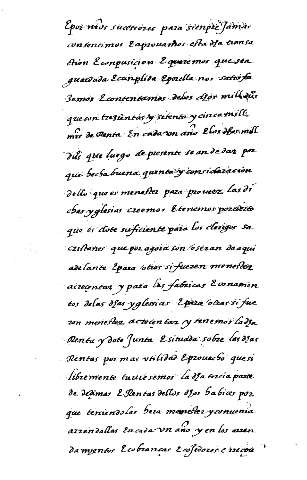 E por n̄ros sucesores para siempre jamas
consentimos E aprovamos esta dha transa
ction E conpusicion E queremos que sea
guardada E conplida E por ella nos satisfa
zemos E contentamos delos dhos mill dus
que son trezientas y setenta y cinco mill
mrs de Renta En cada un año E los dhos mill
dus que luego de presente se an de dar por
que hecha buena quenta y consideracion
dello que es menester para proveer las di
chas yglesias creemos E tenemos por cierto
que es dote suficiente para los clerigos sa
cristanes que por agora son o seran de aqui
adelante E para otros si fueren menester
acrecentar y para las fabricas E ornamen
tos delas dhas yglesias E para otras si fue
ren menester acrecentar y tenemos la dha
Renta y dote junta E situada sobre las dhas
Rentas por mas utilidad E provecho que si
libremente tuviesemos la dha tercia parte
de dezimas E Rentas dellos dhos habizes por
que teniendolas hera menester y convenia
arrendallas En cada un año y en los arren
damientos E cobranças E cojedores e recoja